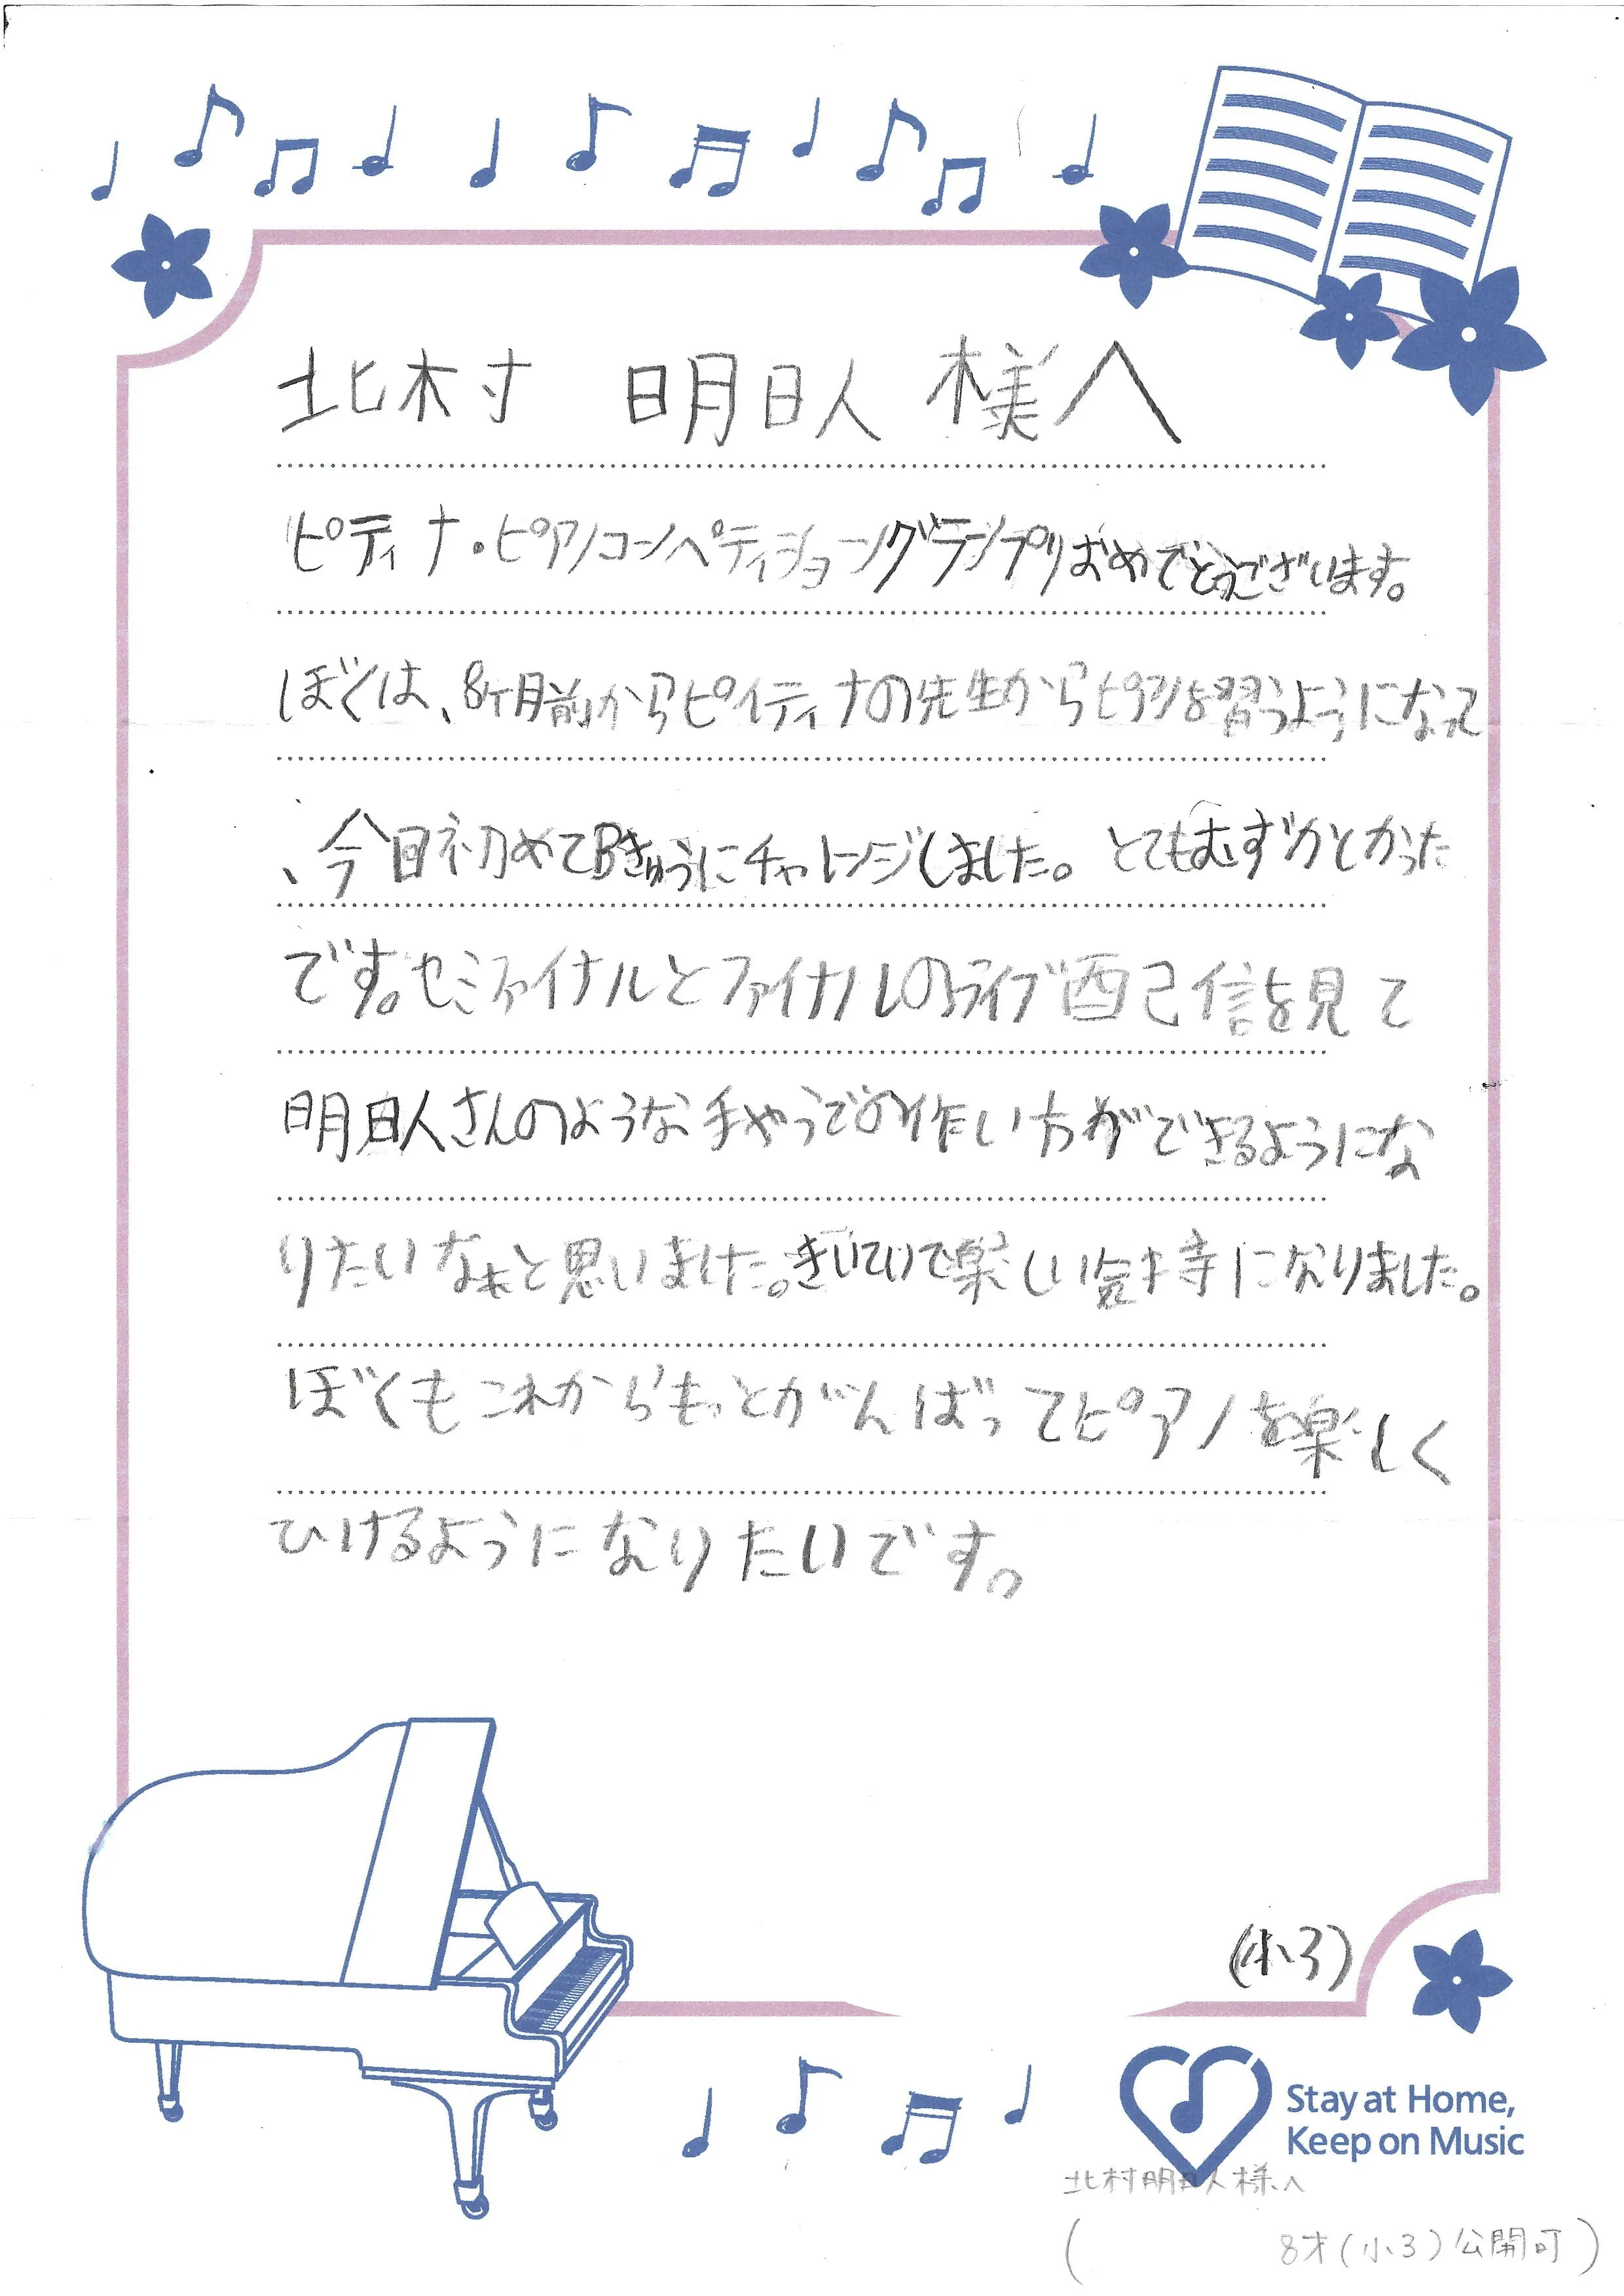 北村 明日人 様へ
ピティナ・ピアノコンペティショングランプリおめでとうございます。
ぼくは、8ヶ月前からピィティナの先生からピアノを習うようになって
、今回初めてBきゅうにチャレンジしました。とてもむずかしかった
です。セミファイナルとファイナルのライブ配信を見て
明日人さんのような手やうでの作い方ができるようにな
りたいなぁと思いました。きいていて楽しい気持になりました。
ぼくもこれからもっとがんばってピアノを楽しく
ひけるようになりたいです。
(小3)
Stay at Home,
Keep on Music
北村明日人様へ
( 8才(小3)公開可)